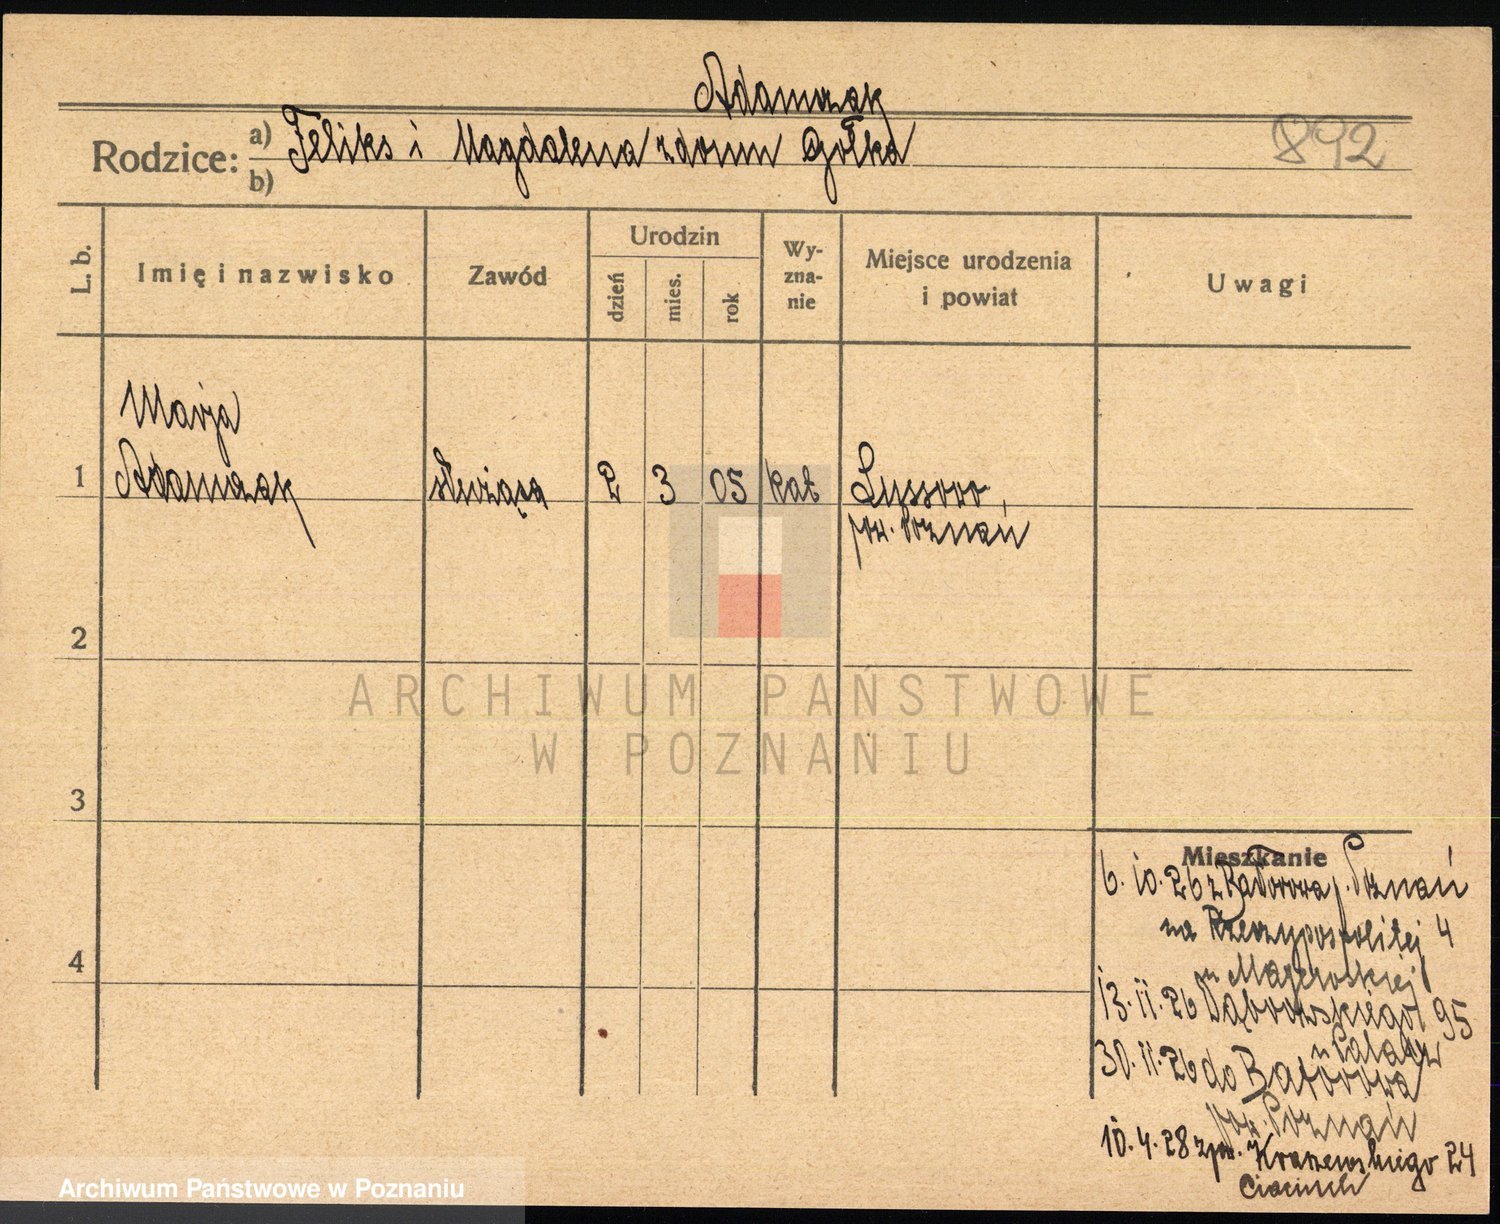 Adamczak
892
Rodzice: a) Feliks i Magdalena z domu Gołka
b)
L. b.
Imię i nazwisko
Zawód
Urodzin
dzień
mies.
rok
Wy-
zna-
nie
Miejsce urodzenia
i powiat
Uwagi
Marja
1 Adamczak służąca 2 3 05 kat Lussowo,
pow. Poznań
2
ARCHIWUM PAŃSTWOWE
W POZNANIU
3
4
Mieszkanie
6.10.26 z Batorowa p. Poznań
na Rzeczypospolitej 4
u
13.11.26 Dąbrowskiego 95
u
30.11.26 do Batorowa
pow. Poznań
10.4.28 Kraszewskiego 24
Archiwum Państwowe w Poznaniu